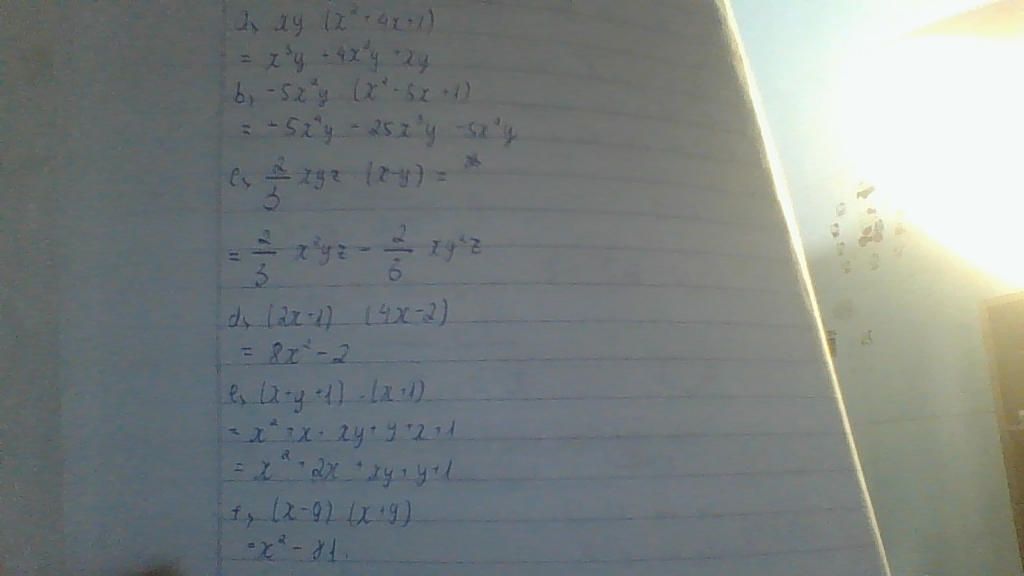 a, xy (x² + 4x + 1)
= x³y + 4x²y + xy
b, -5x²y (x² - 5x + 1)
= -5x⁴y - 25x³y - 5x²y
c, 2/3 xyz (x-y) =
= 2/3 x²yz - 2/3 xy²z
d, (2x-1) (4x-2)
= 8x² - 2
e, (x+y+1) . (x+1)
= x² + x + xy + y + x + 1
= x² + 2x + xy + y + 1
f, (x-9) (x+9)
= x² - 81.